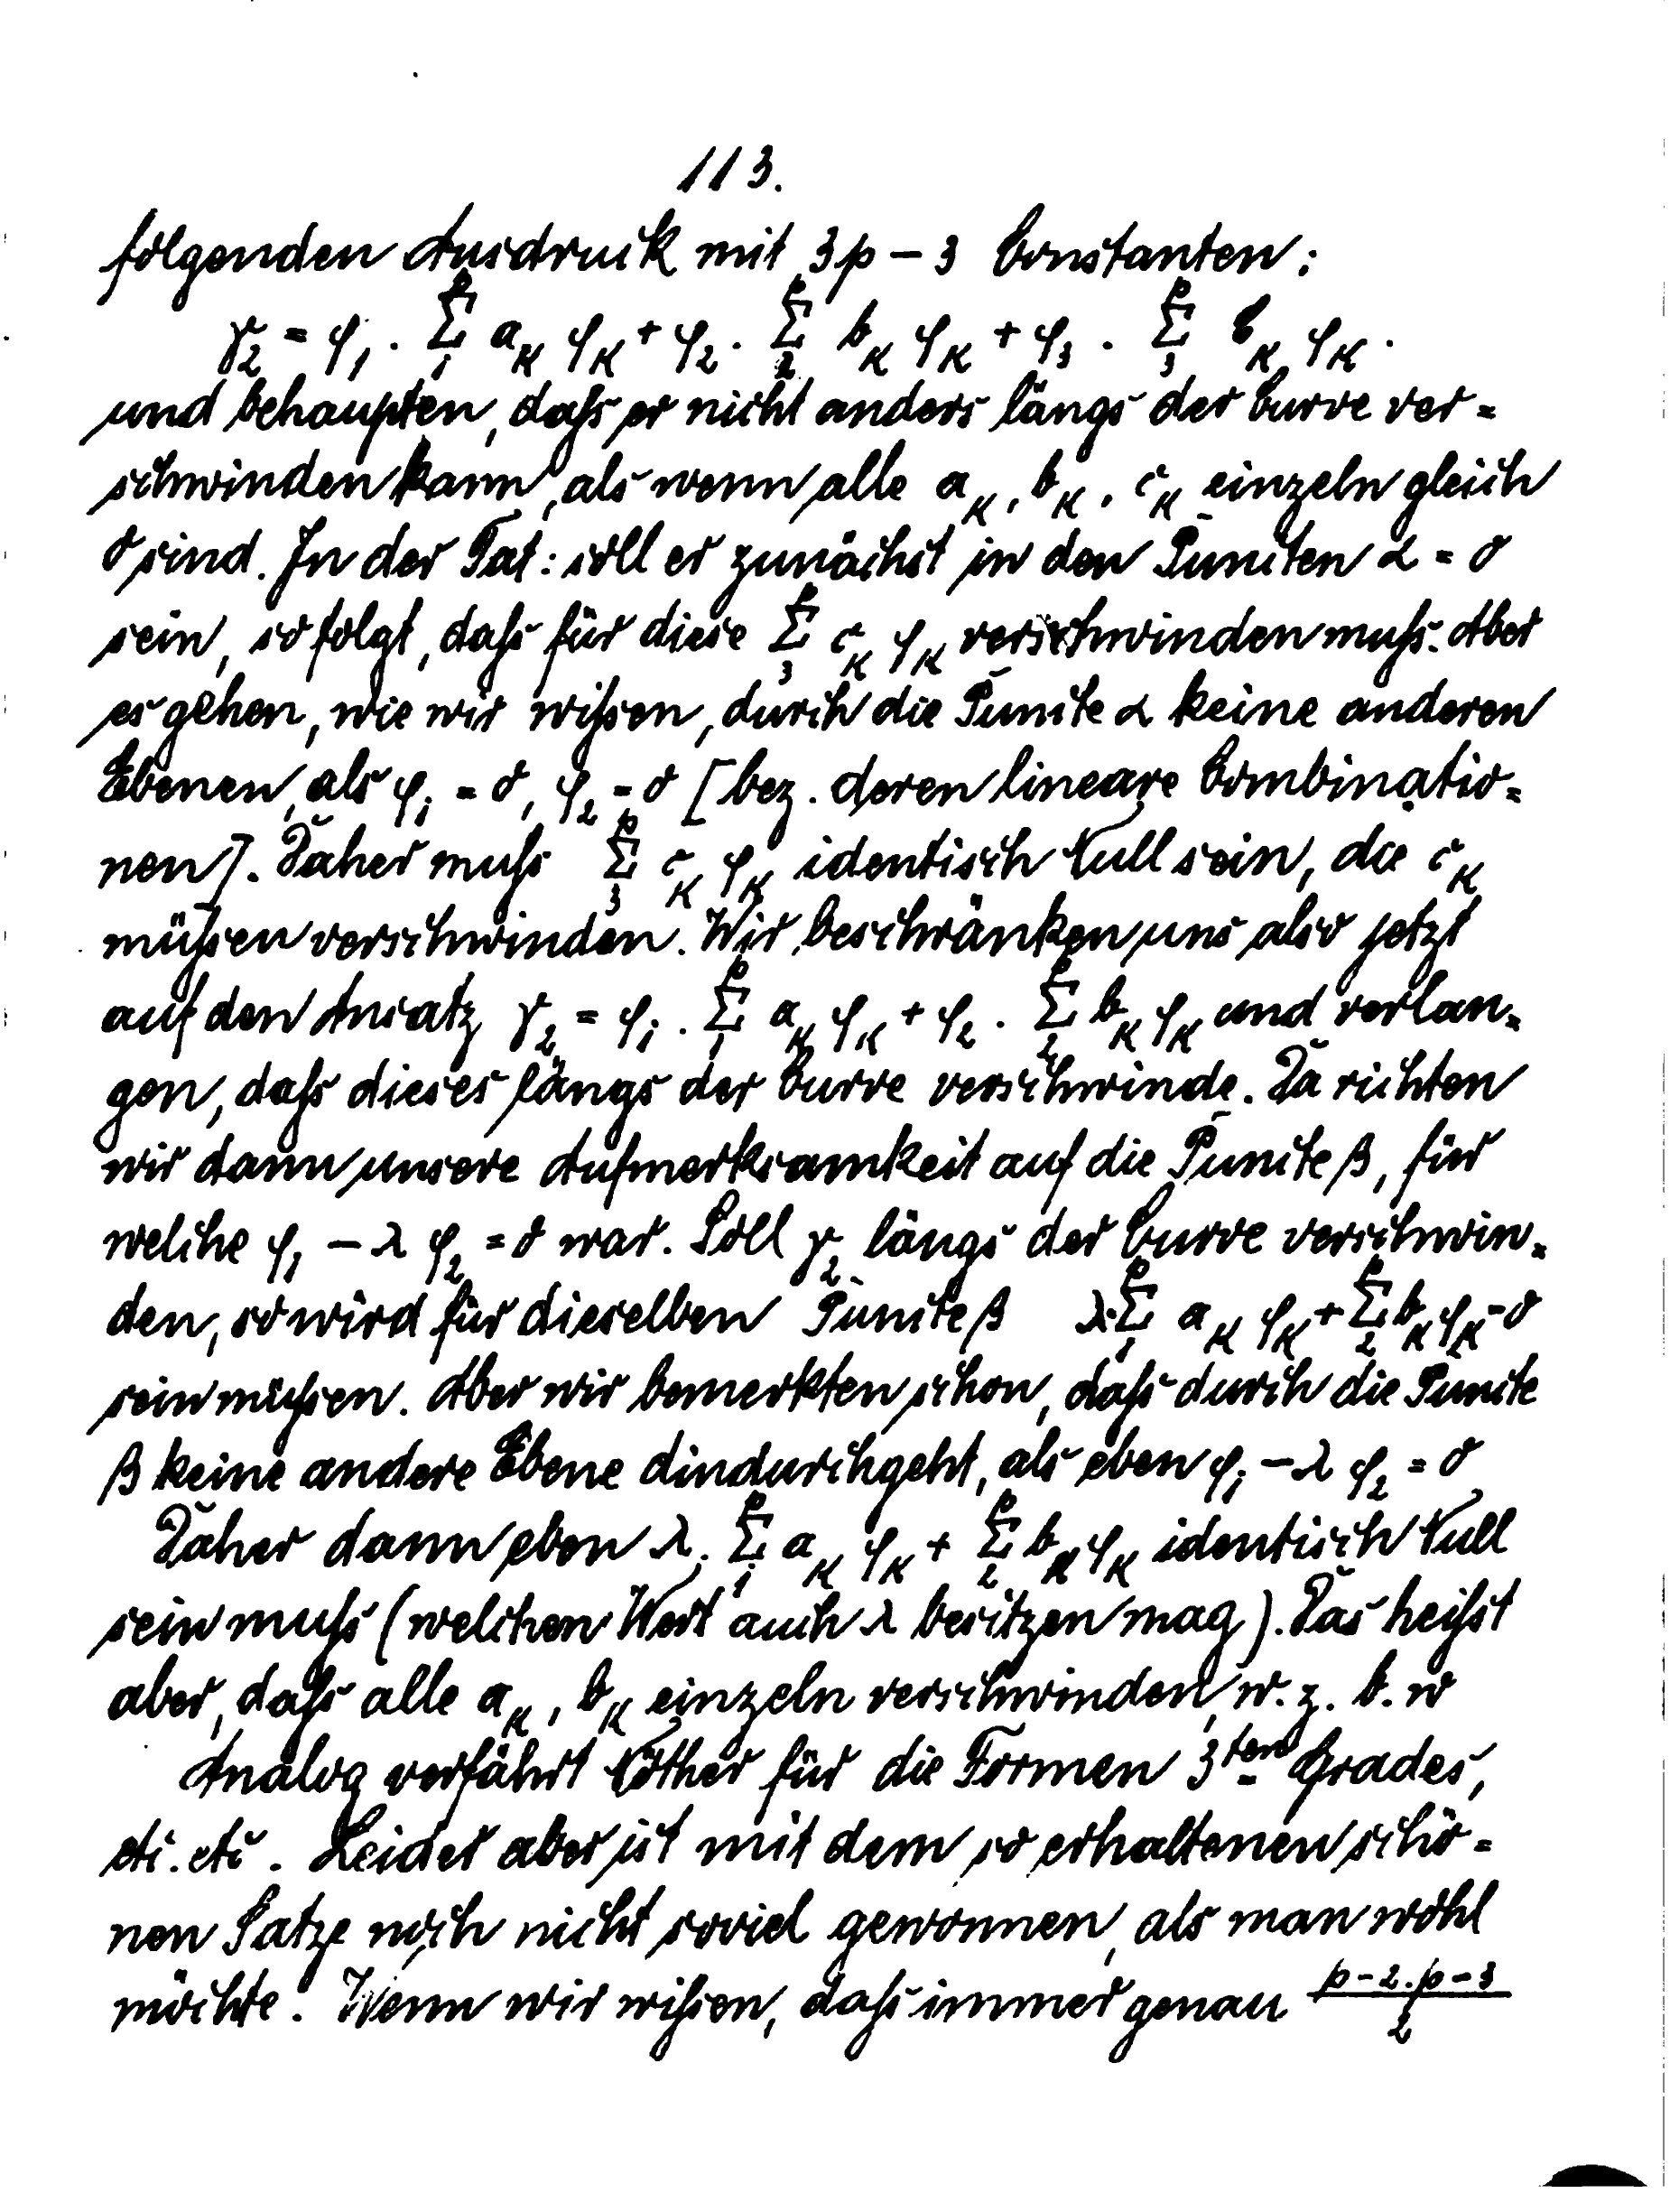 113.
folgenden Ausdruck mit 3p – 3 Constanten:
γ₂ = φ₁ · Σ₁ᵖ a_κ φ_κ + φ₂ · Σ₂ᵖ b_κ φ_κ + φ₃ · Σ₃ᵖ c_κ φ_κ.
und behaupten, daſs er nicht anders längs der Curve ver=
schwinden kann, als wenn alle a_κ, b_κ, c_κ einzeln gleich
0 sind. In der Tat: soll er zunächst in den Puncten α = 0
sein, so folgt, daſs für diese Σ₃ᵖ c_κ φ_κ verschwinden muſs. Aber
es gehen, wie wir wiſsen, durch die Puncte α keine anderen
Ebenen, als φ₁ = 0, φ₂ = 0 [bez. deren lineare Combinatio=
nen]. Daher muſs Σ₃ᵖ c_κ φ_κ identisch Null sein, die c_κ
müſsen verschwinden. Wir beschränken uns also jetzt
auf den Ansatz γ₂ = φ₁ · Σ₁ᵖ a_κ φ_κ + φ₂ · Σ₂ᵖ b_κ φ_κ und verlan=
gen, daſs dieses längs der Curve verschwinde. Da richten
wir dann unsere Aufmerksamkeit auf die Puncte β, für
welche φ₁ – λ φ₂ = 0 war. Soll γ₂ längs der Curve verschwin=
den, so wird für dieselben Puncte β λ·Σ₁ᵖ a_κ φ_κ + Σ₂ᵖ b_κ φ_κ = 0
sein müſsen. Aber wir bemerkten schon, daſs durch die Puncte
β keine andere Ebene dindurchgeht, als eben φ₁ – λ φ₂ = 0
Daher dann eben λ · Σ₁ᵖ a_κ φ_κ + Σ₂ᵖ b_κ φ_κ identisch Null
sein muſs (welchen Wert auch λ besitzen mag). Das heiſst
aber, daſs alle a_κ, b_κ einzeln verschwinden, w. z. b. w
Analog verfährt Nöther für die Formen 3ten Grades,
etc. etc. Leider aber ist mit dem so erhaltenen schö=
nen Satze noch nicht soviel gewonnen, als man wohl
möchte. Wenn wir wiſsen, daſs immer genau (p – 2 . p – 3)/2